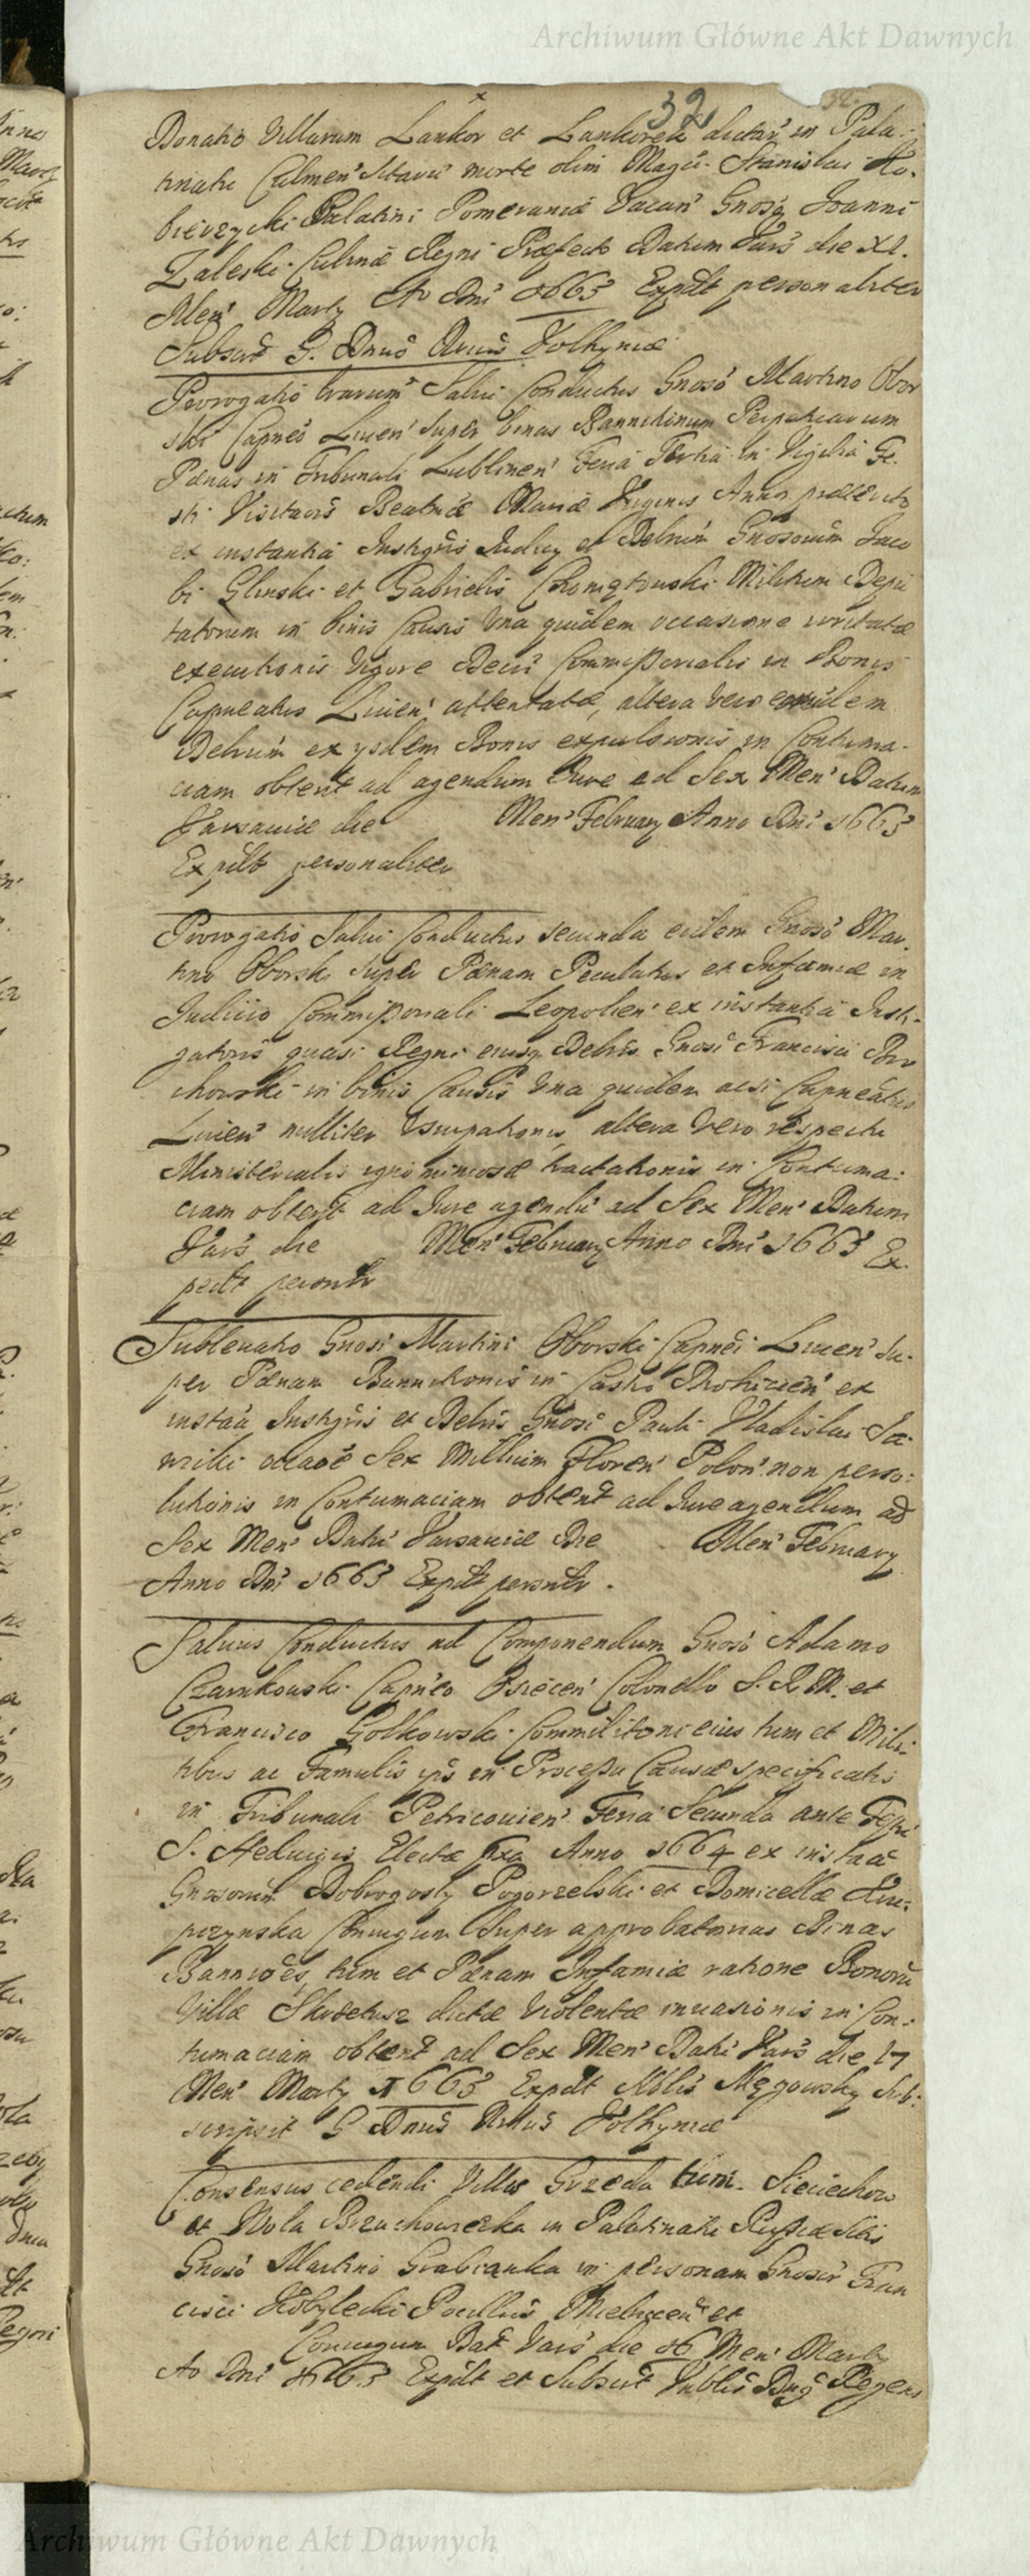 Archiwum Główne Akt Dawnych
32
Donatio Villarum Lankor et Lankorek dictar in Pala:
tinatu Culmen Sitarum morte olim Magci Stanislai Ko,
bierzycki Palatini Pomeraniæ Vacan Gnoso Joanni
Zaleski Culinæ Regni Præfecto Datum Vars die XI.
Men Marty Ao Dni 1663 Expdt personaliter
Subscr G. Dnus Volhyniæ
Prorogatio Salvi Conductus Gnoso Martino Obor
ski Capneo Liven super binas Bannitionum Perpetuarum
Pænas in Tribunali Lublinen Feria Tertia in Vigilia Fe.
sti Visitaois Beatæ Mariæ Virginis Anno præterito
ex instantia Instigris Judicy et Delrum Gnosorum Jaco
bi Glinski et Gabrielis Militum Depu
tatorum in binis Causis Una quidem occasione irritatæ
executionis Vigore Decri Commissorialis in Bonis
Capneatus Liven attentatæ, altera vero eorundem
Delrum ex ysdem Bonis expulsionis in Contuma-
ciam obtent ad agendum Jure ad Sex Men Datum
Varsaviæ die Men February Anno Dni 1663
Expdt personaliter
Prorogatio Salvi Conductus secunda eidem Gnoso Mar.
tino Oborski super Pænam Peculatus et Infamiæ in
Judicio Commissoriali Leopolien ex instantia Insti-
gatoris quasi Regni eiusq Delris Gnosi Francisci
chowski in binis Causis Una quidem acsi Capneatus
Liven nulliter Usurpationis, altera Vero respectu
Ministerialis ignominiosæ tractationis in Contuma:
ciam obtent ad Jure agendu ad Sex Men Datum
Vars die Men February Anno Dni 1663 Ex.
pedt personlr
Sublevatio Gnosi Martini Oborski Capnei Liven su-
per Pænam Bannitionis in Castro Drohicien ex
instaa Instigris et Delris Gnosi Pauli Vladislai Sa
wicki Sex Millium Floren Polon non perso:
lutionis in Contumaciam obtent ad Jure agendum ad
Sex Men Dati Varsaviæ Die Men February
Anno Dni 1663 Expdt personlr.
Salvus Conductus ad Componendum Gnoso Adamo
Czarnkowski Capneo Osiecen Colonello S. R. M. et
Francisco Golkowski Commilitoni eius tum et Mili:
tibus ac Famulis ips in Processu Causæ specificatis
in Tribunali Petricovien Feria Secunda ante Fest
S. Hedwigis Electæ Anno 1664 ex instaa
Gnosorum Dobrogosty Pogorzelski et Domicellæ
Coniugum Super approbatorias Binas
Bannioes, tum et Pænam Infamiæ ratione Bonoru
Villæ dictæ Violentæ invasionis in Con:
tumaciam obtent ad Sex Men Dati Vars die 17
Men Marty 1663 Expdt Nblis Męgowsky Sub:
scripsit G Dnus Volhyniæ
Consensus cedendi Villas Grzeda tum. Sieciechow
et Wola Brzuchowiczka in Palatinatu Russiæ Sitis
Gnoso Martino Grabianka in personam Gnosor Fran
cisci Kobylecki Pocillris et
Coniugum Dat Vars die 16 Men Marty
Ao Dni 1663 Expdt et Subscrt Regens
Archiwum Główne Akt Dawnych